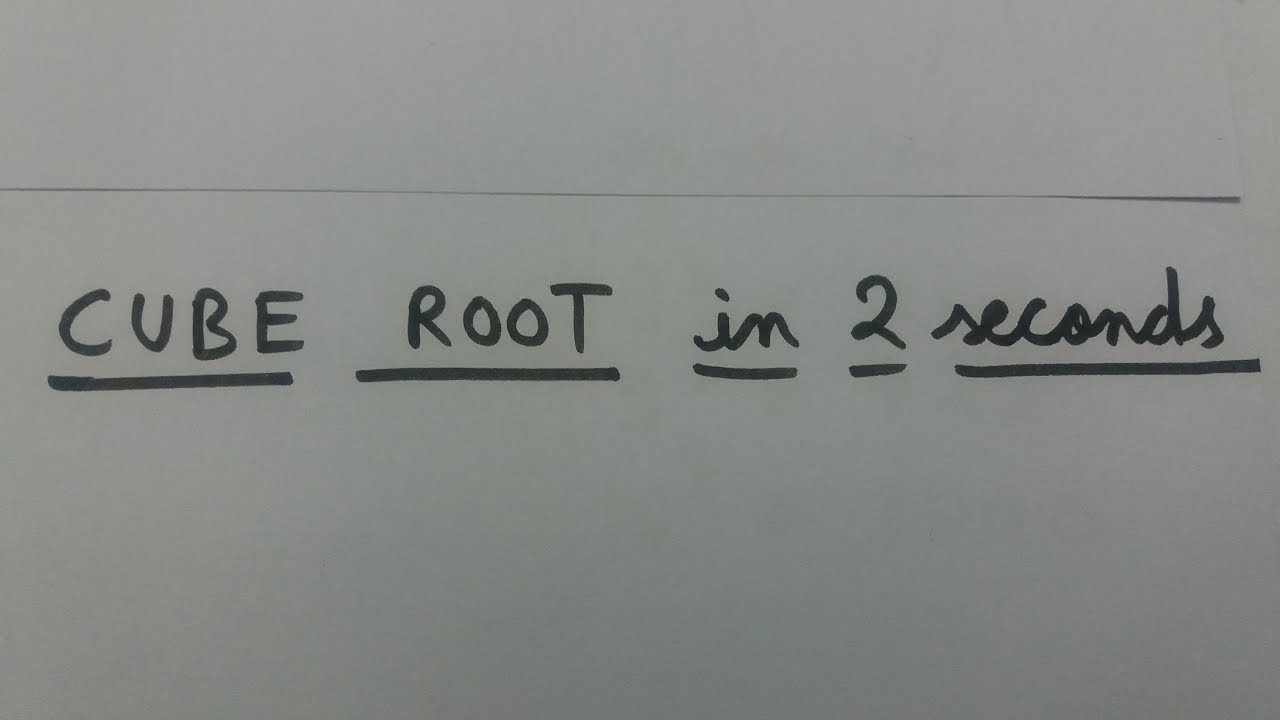 CUBE ROOT in 2 seconds